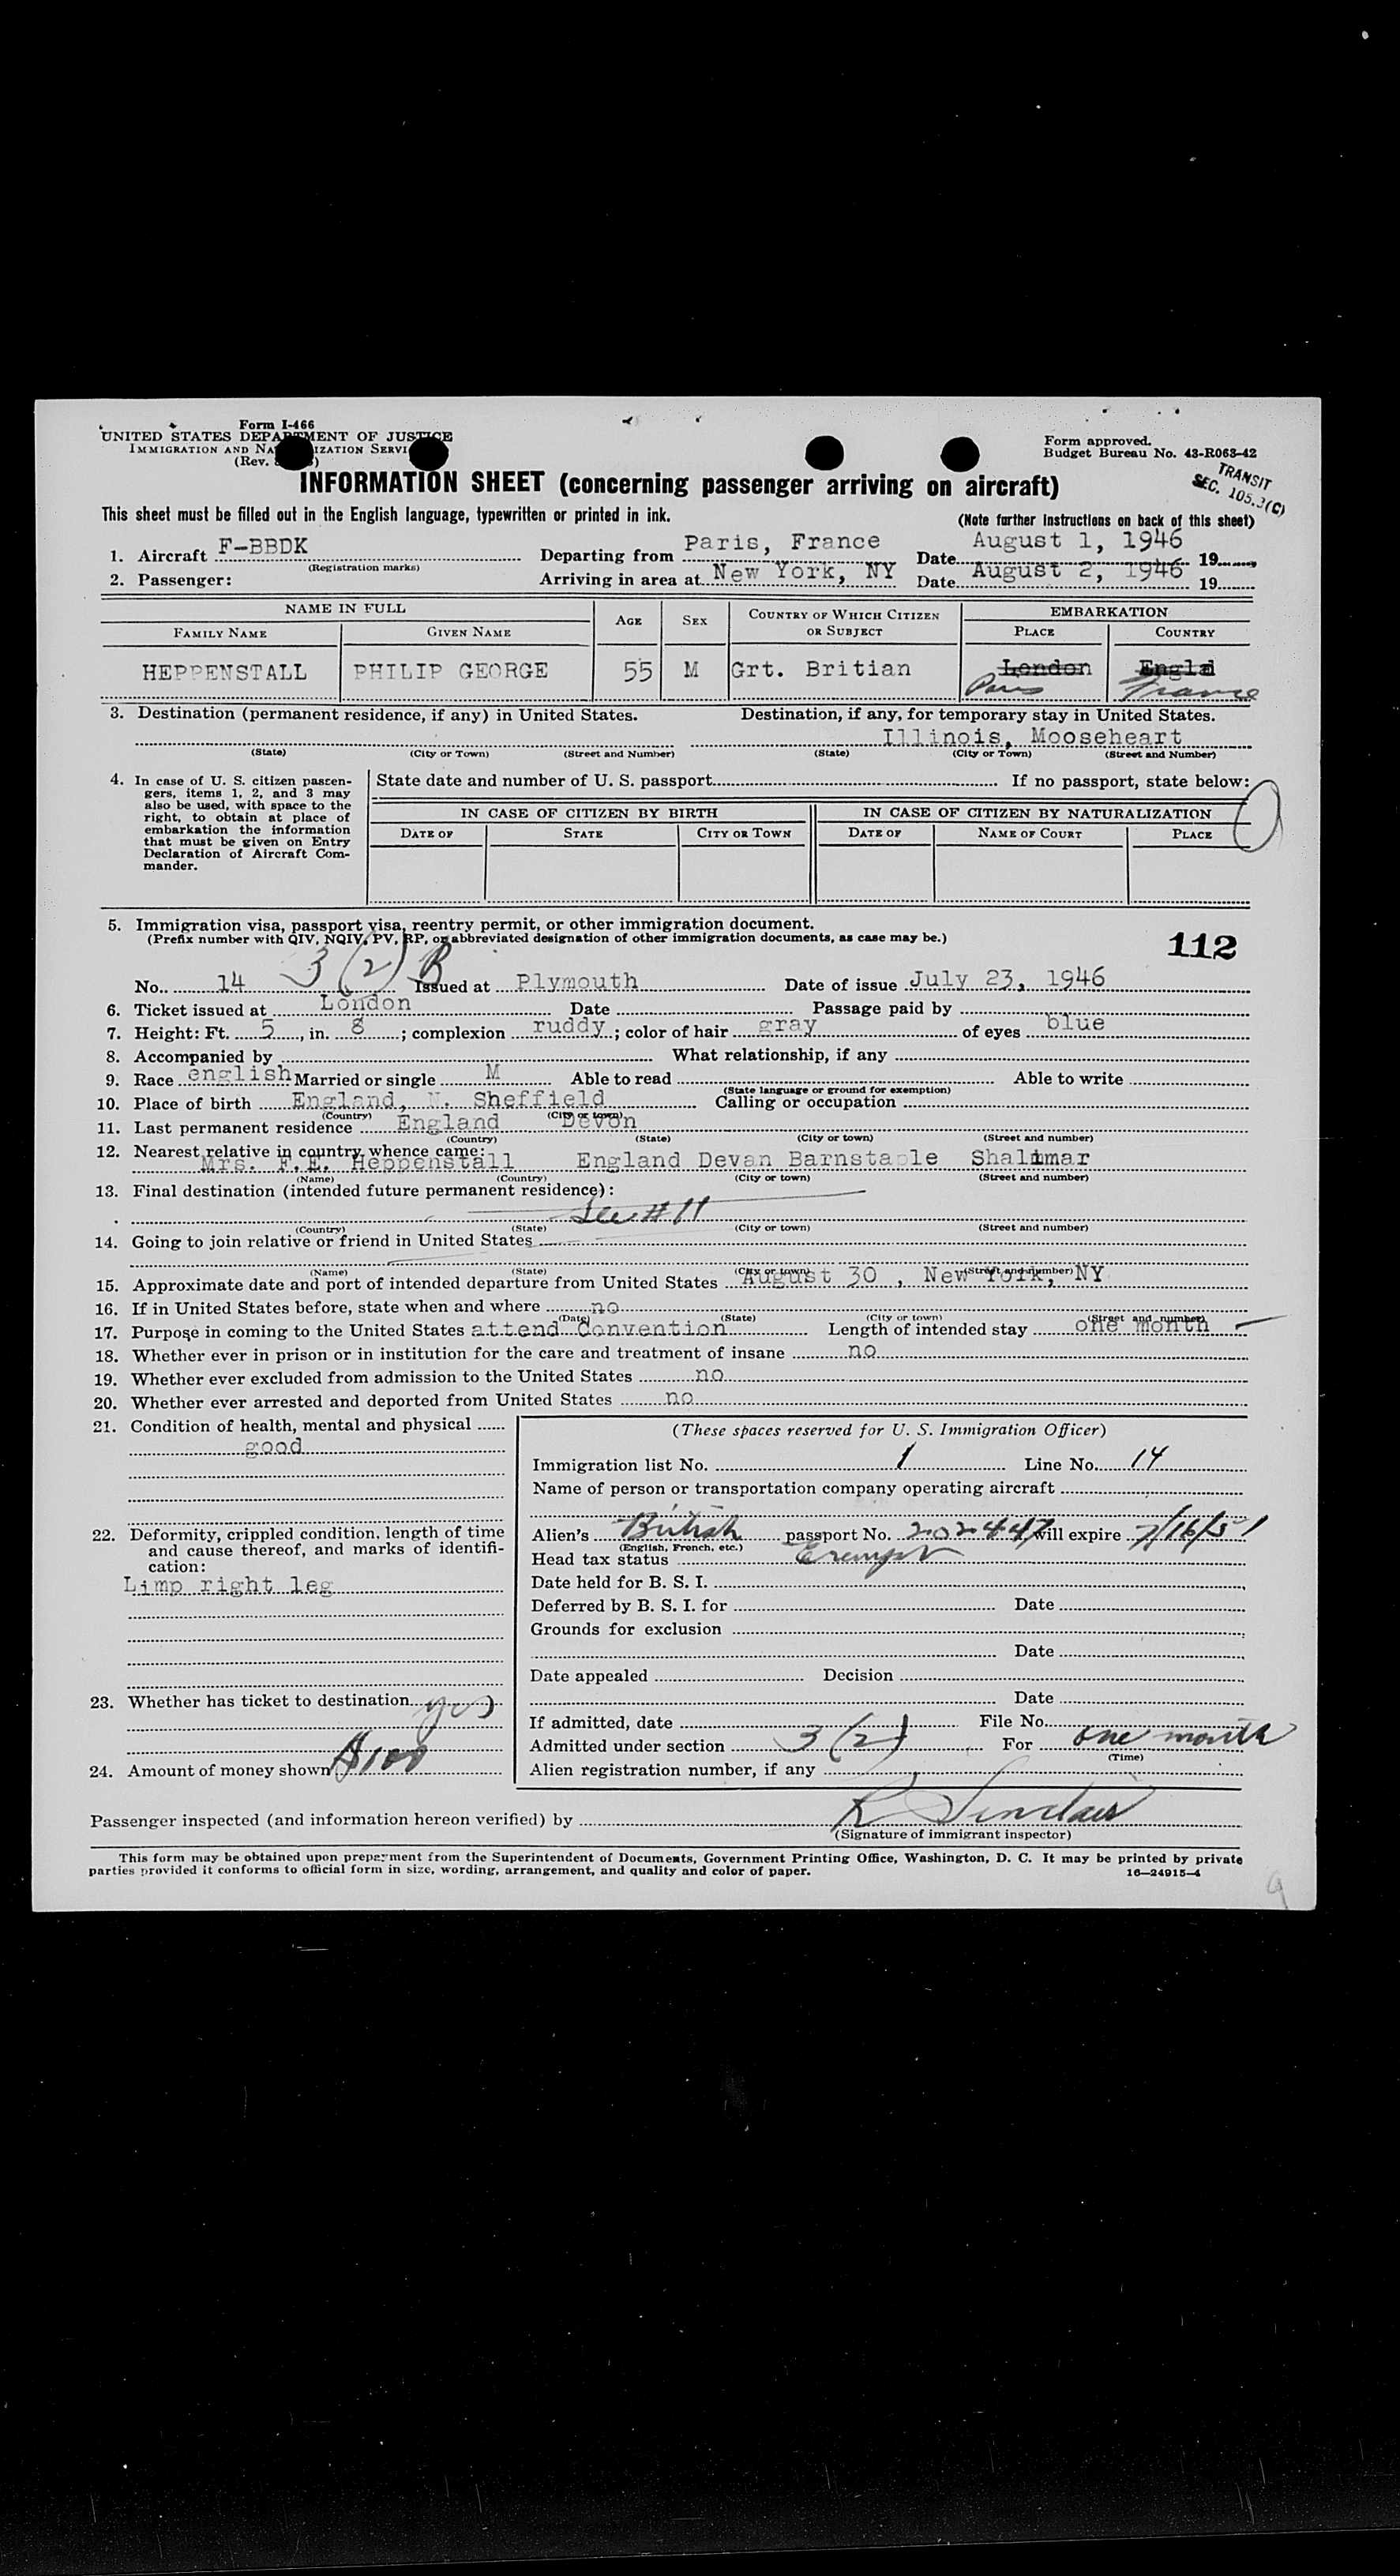 Form I-466
UNITED STATES DEPARTMENT OF JUSTICE
IMMIGRATION AND NATURALIZATION SERVICE
(Rev.
Form approved.
Budget Bureau No. 43-R063-42
TRANSIT
SEC. 105.3(C)
INFORMATION SHEET (concerning passenger arriving on aircraft)
This sheet must be filled out in the English language, typewritten or printed in ink.
(Note further instructions on back of this sheet)
1. Aircraft F-BBDK Departing from Paris, France Date August 1, 1946 19
(Registration marks)
2. Passenger: Arriving in area at New York, NY Date August 2, 1946 19
NAME IN FULL AGE SEX COUNTRY OF WHICH CITIZEN OR SUBJECT EMBARKATION
FAMILY NAME GIVEN NAME PLACE COUNTRY
HEPPENSTALL PHILIP GEORGE 55 M Grt. Britian London Englad
Paris France
3. Destination (permanent residence, if any) in United States. Destination, if any, for temporary stay in United States.
Illinois, Mooseheart
(State) (City or Town) (Street and Number) (State) (City or Town) (Street and Number)
4. In case of U. S. citizen passengers, items 1, 2, and 3 may also be used, with space to the right, to obtain at place of embarkation the information that must be given on Entry Declaration of Aircraft Commander.
State date and number of U. S. passport If no passport, state below:
IN CASE OF CITIZEN BY BIRTH IN CASE OF CITIZEN BY NATURALIZATION
DATE OF STATE CITY OR TOWN DATE OF NAME OF COURT PLACE
5. Immigration visa, passport visa, reentry permit, or other immigration document.
(Prefix number with QIV, NQIV, PV, RP, or abbreviated designation of other immigration documents, as case may be.)
112
3 (2) B
No. 14 Issued at Plymouth Date of issue July 23, 1946
6. Ticket issued at London Date Passage paid by
7. Height: Ft. 5, in. 8; complexion ruddy; color of hair gray of eyes blue
8. Accompanied by What relationship, if any
9. Race english Married or single M Able to read Able to write
(State language or ground for exemption)
10. Place of birth England, N. Sheffield Calling or occupation
(Country) (City or town)
11. Last permanent residence England Devon
(Country) (State) (City or town) (Street and number)
12. Nearest relative in country whence came:
Mrs. F.E. Heppenstall England Devan Barnstaple Shalimar
(Name) (Country) (City or town) (Street and number)
13. Final destination (intended future permanent residence):
See # 11
(Country) (State) (City or town) (Street and number)
14. Going to join relative or friend in United States
(Name) (State) (City or town) (Street and number)
15. Approximate date and port of intended departure from United States August 30 , New York, NY
16. If in United States before, state when and where no
(Date) (State) (City or town) (Street and number)
17. Purpose in coming to the United States attend Convention Length of intended stay one month
18. Whether ever in prison or in institution for the care and treatment of insane no
19. Whether ever excluded from admission to the United States no
20. Whether ever arrested and deported from United States no
21. Condition of health, mental and physical
good
22. Deformity, crippled condition, length of time and cause thereof, and marks of identification:
Limp right leg
23. Whether has ticket to destination yes
24. Amount of money shown $100
(These spaces reserved for U. S. Immigration Officer)
Immigration list No. 1 Line No. 14
Name of person or transportation company operating aircraft
Alien's British passport No. 202447 will expire 7/16/51
(English, French, etc.)
Head tax status Exempt
Date held for B. S. I.
Deferred by B. S. I. for Date
Grounds for exclusion
Date
Date appealed Decision
Date
If admitted, date File No.
Admitted under section 3 (2) For one month
(Time)
Alien registration number, if any
Passenger inspected (and information hereon verified) by R Sinclair
(Signature of immigrant inspector)
This form may be obtained upon prepayment from the Superintendent of Documents, Government Printing Office, Washington, D. C. It may be printed by private
parties provided it conforms to official form in size, wording, arrangement, and quality and color of paper.
16—24915-4
9